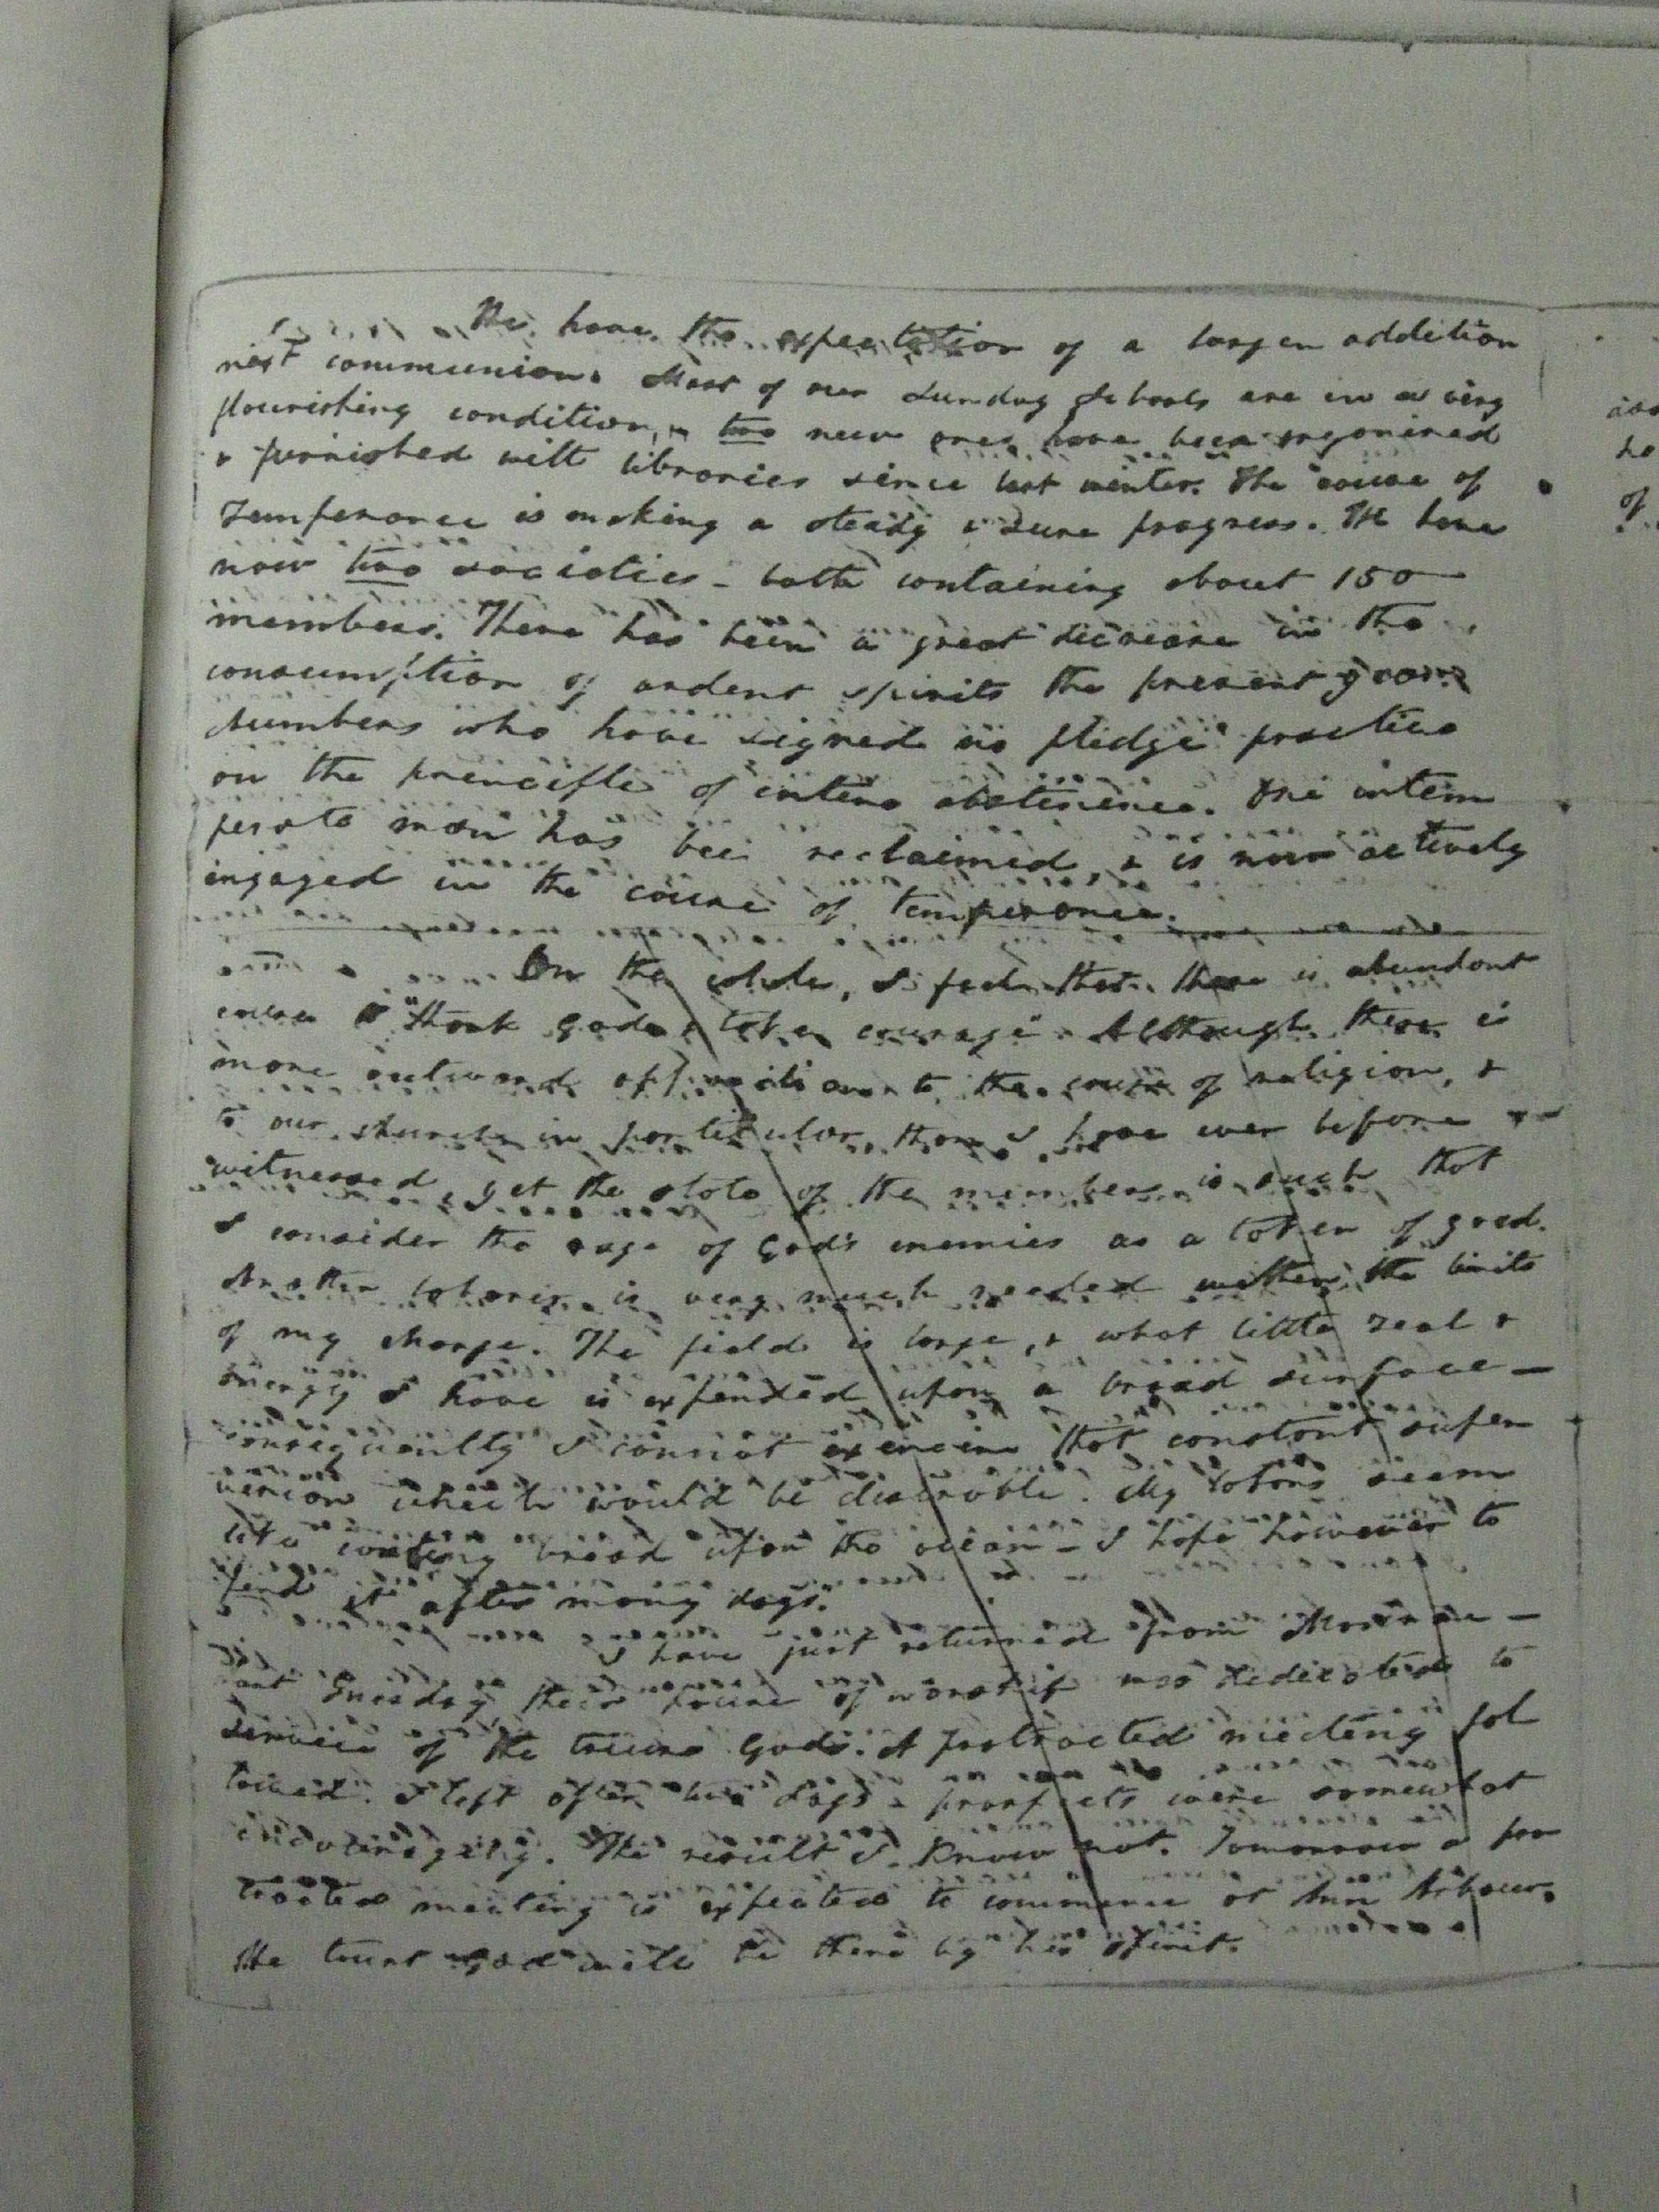 We have the expectation of a larger addition
next communion. Most of our Sunday Schools are in a very
flourishing condition, two new ones have been organized
& furnished with libraries since last winter. The cause of
Temperance is making a steady & sure progress. We have
now two societies - both containing about 150
members. There has been a great decrease in the
consumption of ardent spirits the present year.
Numbers who have signed no pledge practice
on the principle of entire abstinence. One intem
perate man has been reclaimed, & is now actively
engaged in the cause of temperance.
On the whole, I feel that there is abundant
cause to "thank God & take courage". Although there is
more outward opposition to the cause of religion, &
to our church in particular, than I have ever before
witnessed, yet the state of the members is such that
I consider the rage of God's enemies as a token of good.
Another laborer is very much needed within the limits
of my charge. The field is large, & what little zeal &
energy I have is expended upon a broad surface -
consequently I cannot exercise that constant super
vision which would be desirable. My labors seem
like casting bread upon the ocean - I hope however to
find it "after many days."
I have just returned from Monroe -
last Tuesday their house of worship was dedicated to
service of the triune God. A protracted meeting fol
lowed. I left after two days - prospects were somewhat
encouraging. The result I know not. Tomorrow a pro
tracted meeting is expected to commence at Ann Arbour.
We trust God will be there by his spirit.
as
he
of